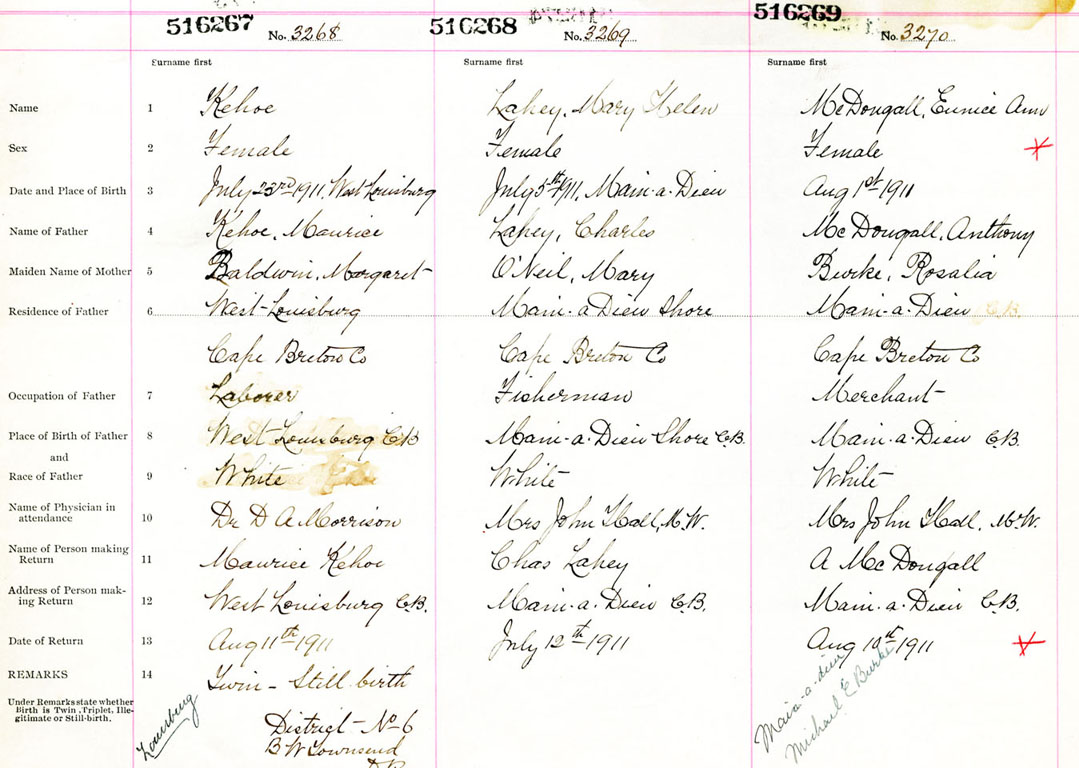 516267 No. 3268 516268 No. 3269 516269 No. 3270
Surname first Surname first Surname first
Name 1 Kehoe Lahey, Mary Helen McDougall, Eunice Ann
Sex 2 Female Female Female
Date and Place of Birth 3 July 23rd 1911, West Louisburg July 5th 1911, Main-a-Dieu Aug 1st 1911
Name of Father 4 Kehoe, Maurice Lahey, Charles McDougall, Anthony
Maiden Name of Mother 5 Baldwin, Margaret O'Neil, Mary Burke, Rosalia
Residence of Father 6 West-Louisburg Main-a Dieu Shore Main-a-Dieu C.B.
Cape Breton Co Cape Breton Co Cape Breton Co
Occupation of Father 7 Laborer Fisherman Merchant
Place of Birth of Father 8 West Louisburg C.B Main-a-Dieu Shore C.B. Main-a-Dieu C.B.
and
Race of Father 9 White White White
Name of Physician in
attendance 10 Dr D A Morrison Mrs John Hall, M.W. Mrs John Hall, M.W.
Name of Person making
Return 11 Maurice Kehoe Chas Lahey A McDougall
Address of Person mak-
ing Return 12 West Louisburg C.B. Main-a-Dieu C.B. Main-a-Dieu C.B.
Date of Return 13 Aug 11th 1911 July 12th 1911 Aug 10th 1911
REMARKS 14 Twin - Still birth
Under Remarks state whether
Birth is Twin, Triplet, Ille-
gitimate or Still-birth.
Louisburg
District - No 6
B W Townsend
D.R.
Main-a-dieu
Michael E Burke